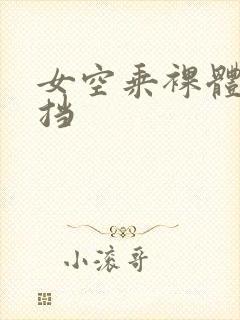 女空乘裸體
挡
小滚哥